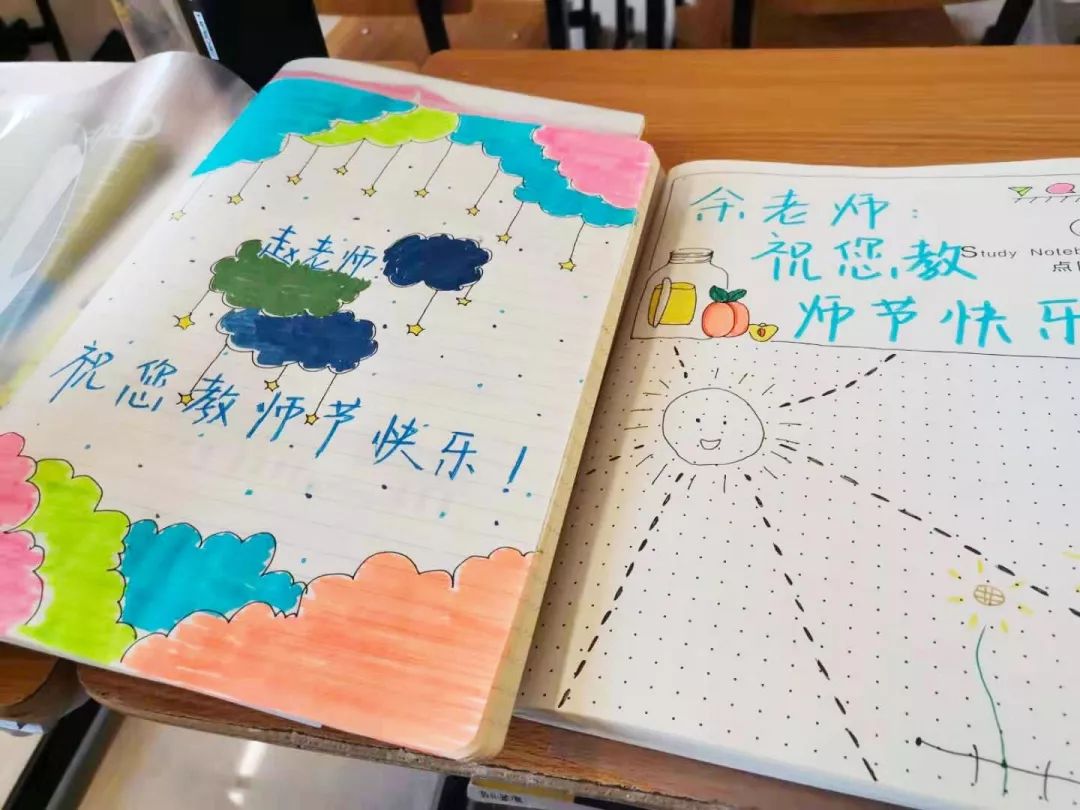 赵老师
祝您教师节快乐！
余老师：
祝您教
师节快乐
Study Note
点